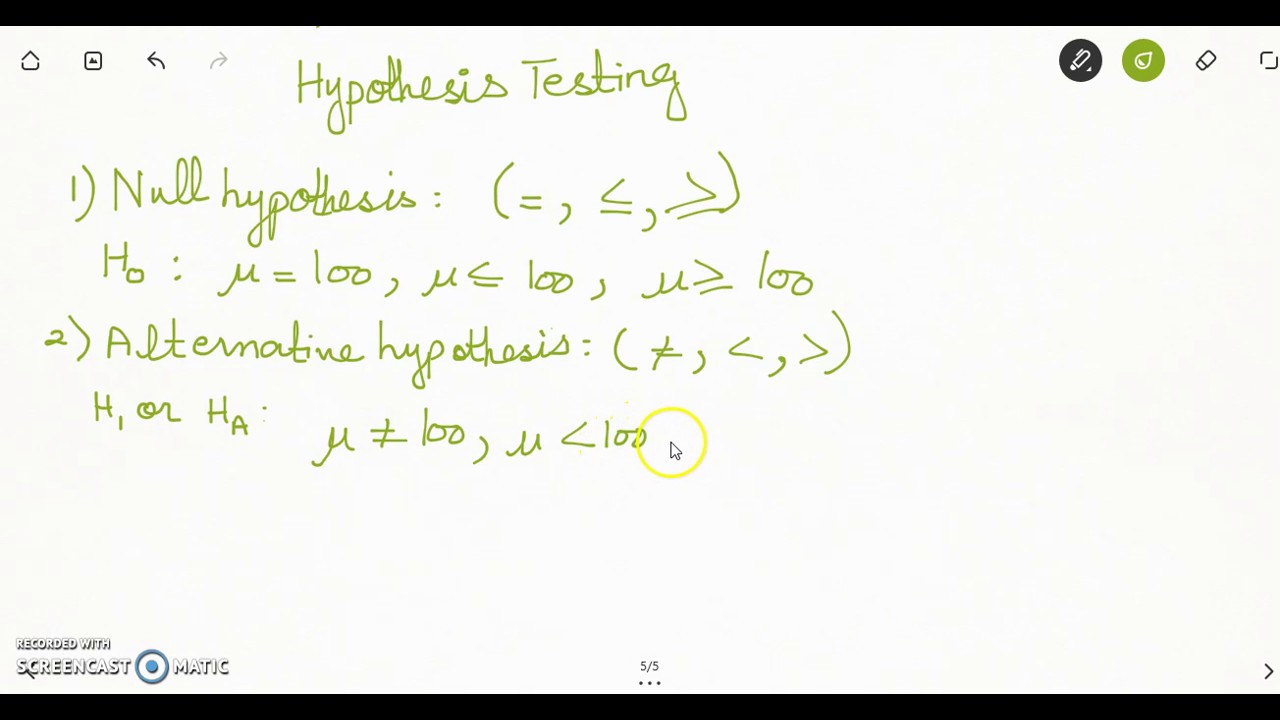 Hypothesis Testing
1) Null hypothesis: (=, ≤, ≥)
H₀ : μ = 100, μ ≤ 100, μ ≥ 100
2) Alternative hypothesis: (≠, <, >)
H₁ or H_A : μ ≠ 100, μ < 100
RECORDED WITH
SCREENCAST MATIC
5/5